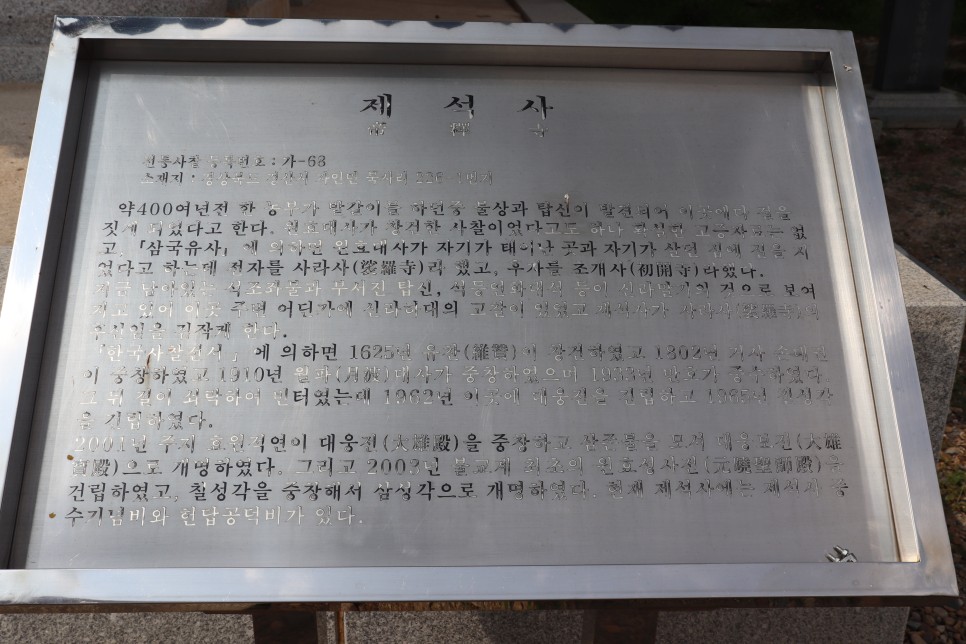 제 석 사
帝 釋 寺
전통사찰 등록번호 : 가-63
소재지 : 경상북도 경산시 자인면 북사리 226
약400여년전 한 농부가 밭갈이를 하던중 불상과 탑신이 발견되어 이곳에다 절을
짓게 되었다고 한다. 원효대사가 창건한 사찰이었다고도 하나 확실한 고증자료는 없
고, 「삼국유사」에 의하면 원효대사가 자기가 태어난 곳과 자기가 살던 집에 절을 지
었다고 하는데 전자를 사라사(裟羅寺)라 했고, 후사를 조개사(初開寺)라했다.
지금 남아있는 석조좌불과 부서진 탑신, 석등연화대석 등이 신라말기의 것으로 보여
지고 있어 이곳 주변 어딘가에 신라시대의 고찰이 있었고 제석사가 사라사(裟羅寺)의
후신임을 짐작케 한다.
「한국사찰전서」에 의하면 1625년 유찬(維賛)이 창건하였고 1802년
이 중창하였고 1910년 월파(月波)대사가 중창하였으며 중수하였다
그 뒤 절이 쇠락하여 빈터였는데 1962년 이곳에 대웅전을 건립하고 칠성각
을 건립하였다.
2001년 주지 효원적연이 대웅전(大雄殿)을 중창하고 삼존불을 모셔 대웅보전(大雄
寶殿)으로 개명하였다. 그리고 2003년 불교계 최초의 원효성사전(元曉聖師殿)을
건립하였고, 칠성각을 중창해서 삼성각으로 개명하였다. 현재 제석사에는 제석사 중
수기념비와 헌답공덕비가 있다.